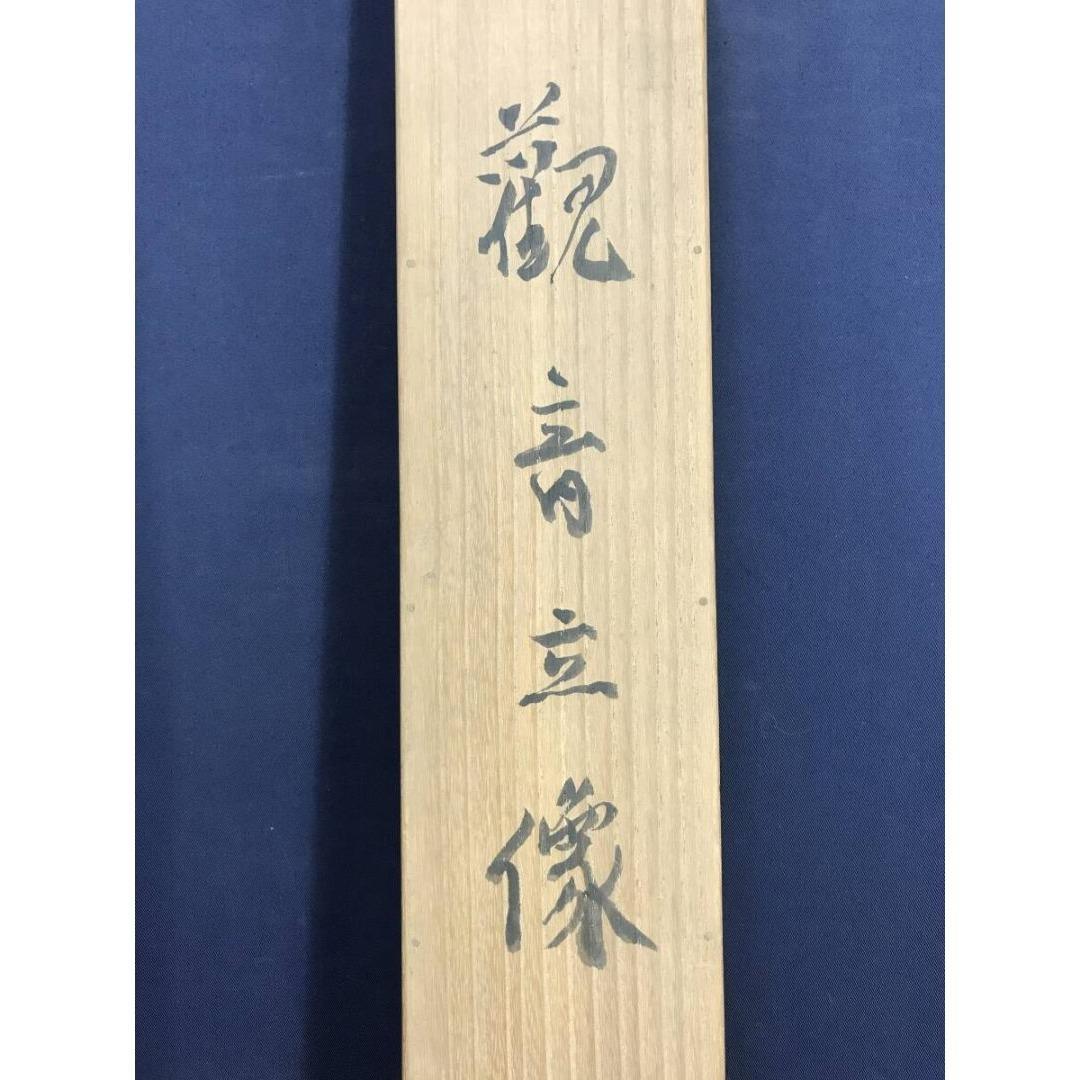 觀音立像